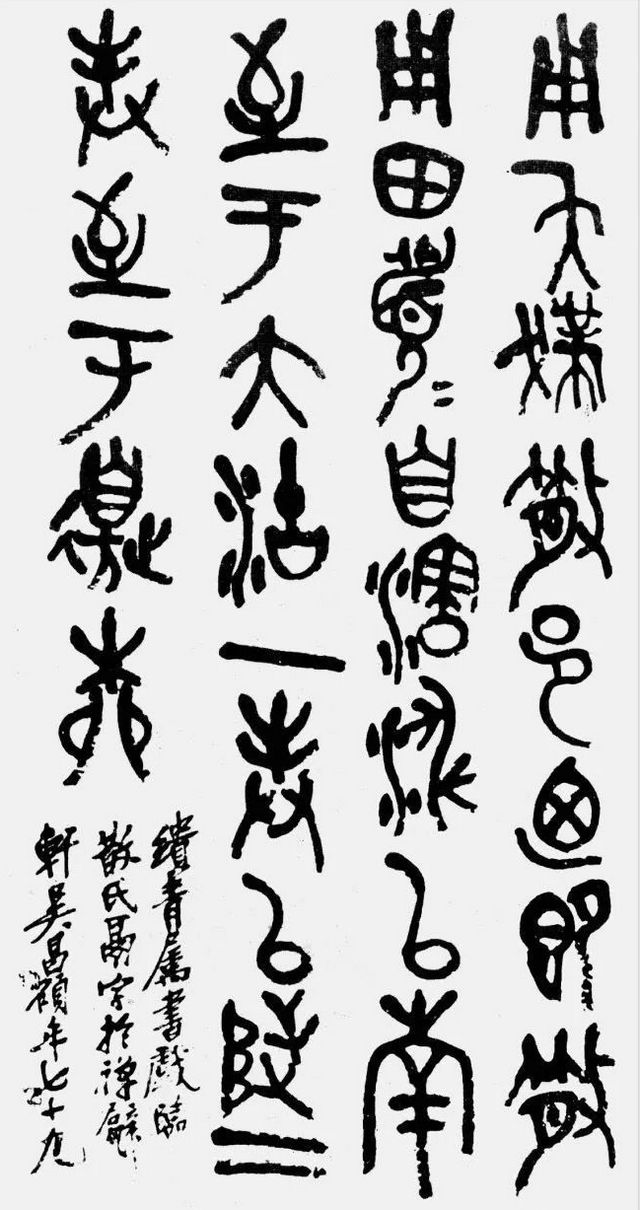 用夨撲散邑廼即散
用田眉自瀗涉以南
至于大沽一封以陟二
封至于邊柳
青屬書戲臨
散氏鬲字於禪甓
軒吳昌碩年七十九